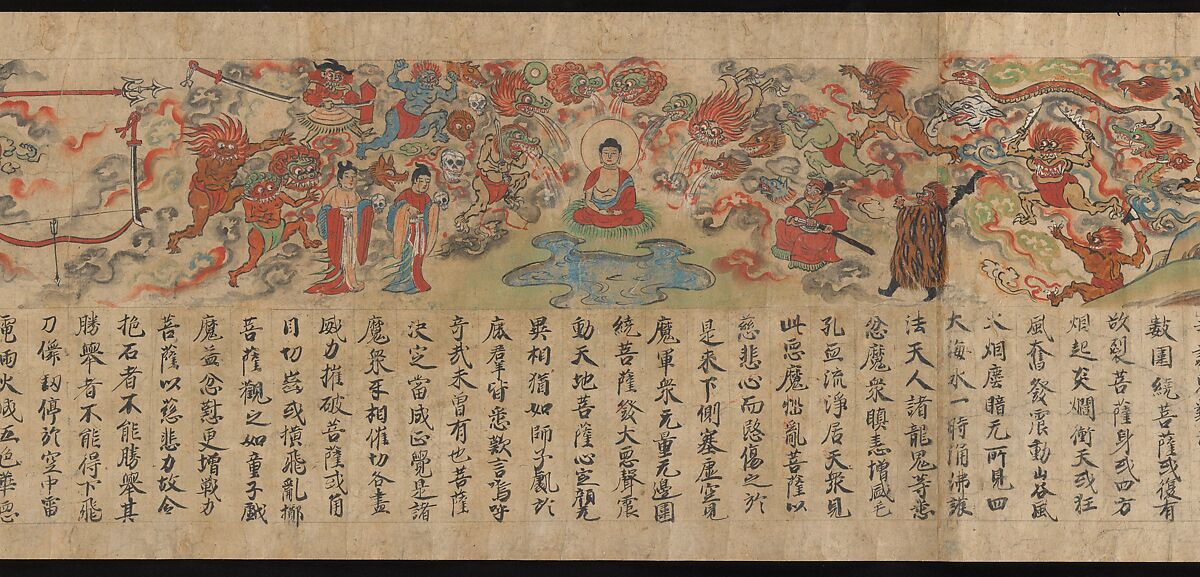 數圍繞菩薩或復有
欲裂菩薩身或四方
烟起炎爓衝天或狂
風奮發震動山谷風
火烟塵暗无所見四
大海水一時涌沸護
法天人諸龍鬼等悉
忿魔衆瞋恚增盛毛
孔血流淨居天衆見
此惡魔惱亂菩薩以
慈悲心而愍傷之於
是來下側塞虛空見
魔軍衆无量无邊圍
繞菩薩發大惡聲震
動天地菩薩心定顏无
異相猶如師子處於
鹿羣皆悉歎言嗚呼
奇哉未曾有也菩薩
決定當成正覺是諸
魔衆互相催切各盡
威力摧破菩薩或角
目切齒或橫飛亂擲
菩薩觀之如童子戲
魔益忿懟更增戰力
菩薩以慈悲力故令
抱石者不能勝舉其
勝舉者不能得下飛
刀儛劒停於空中雷
電雨火成五色華惡